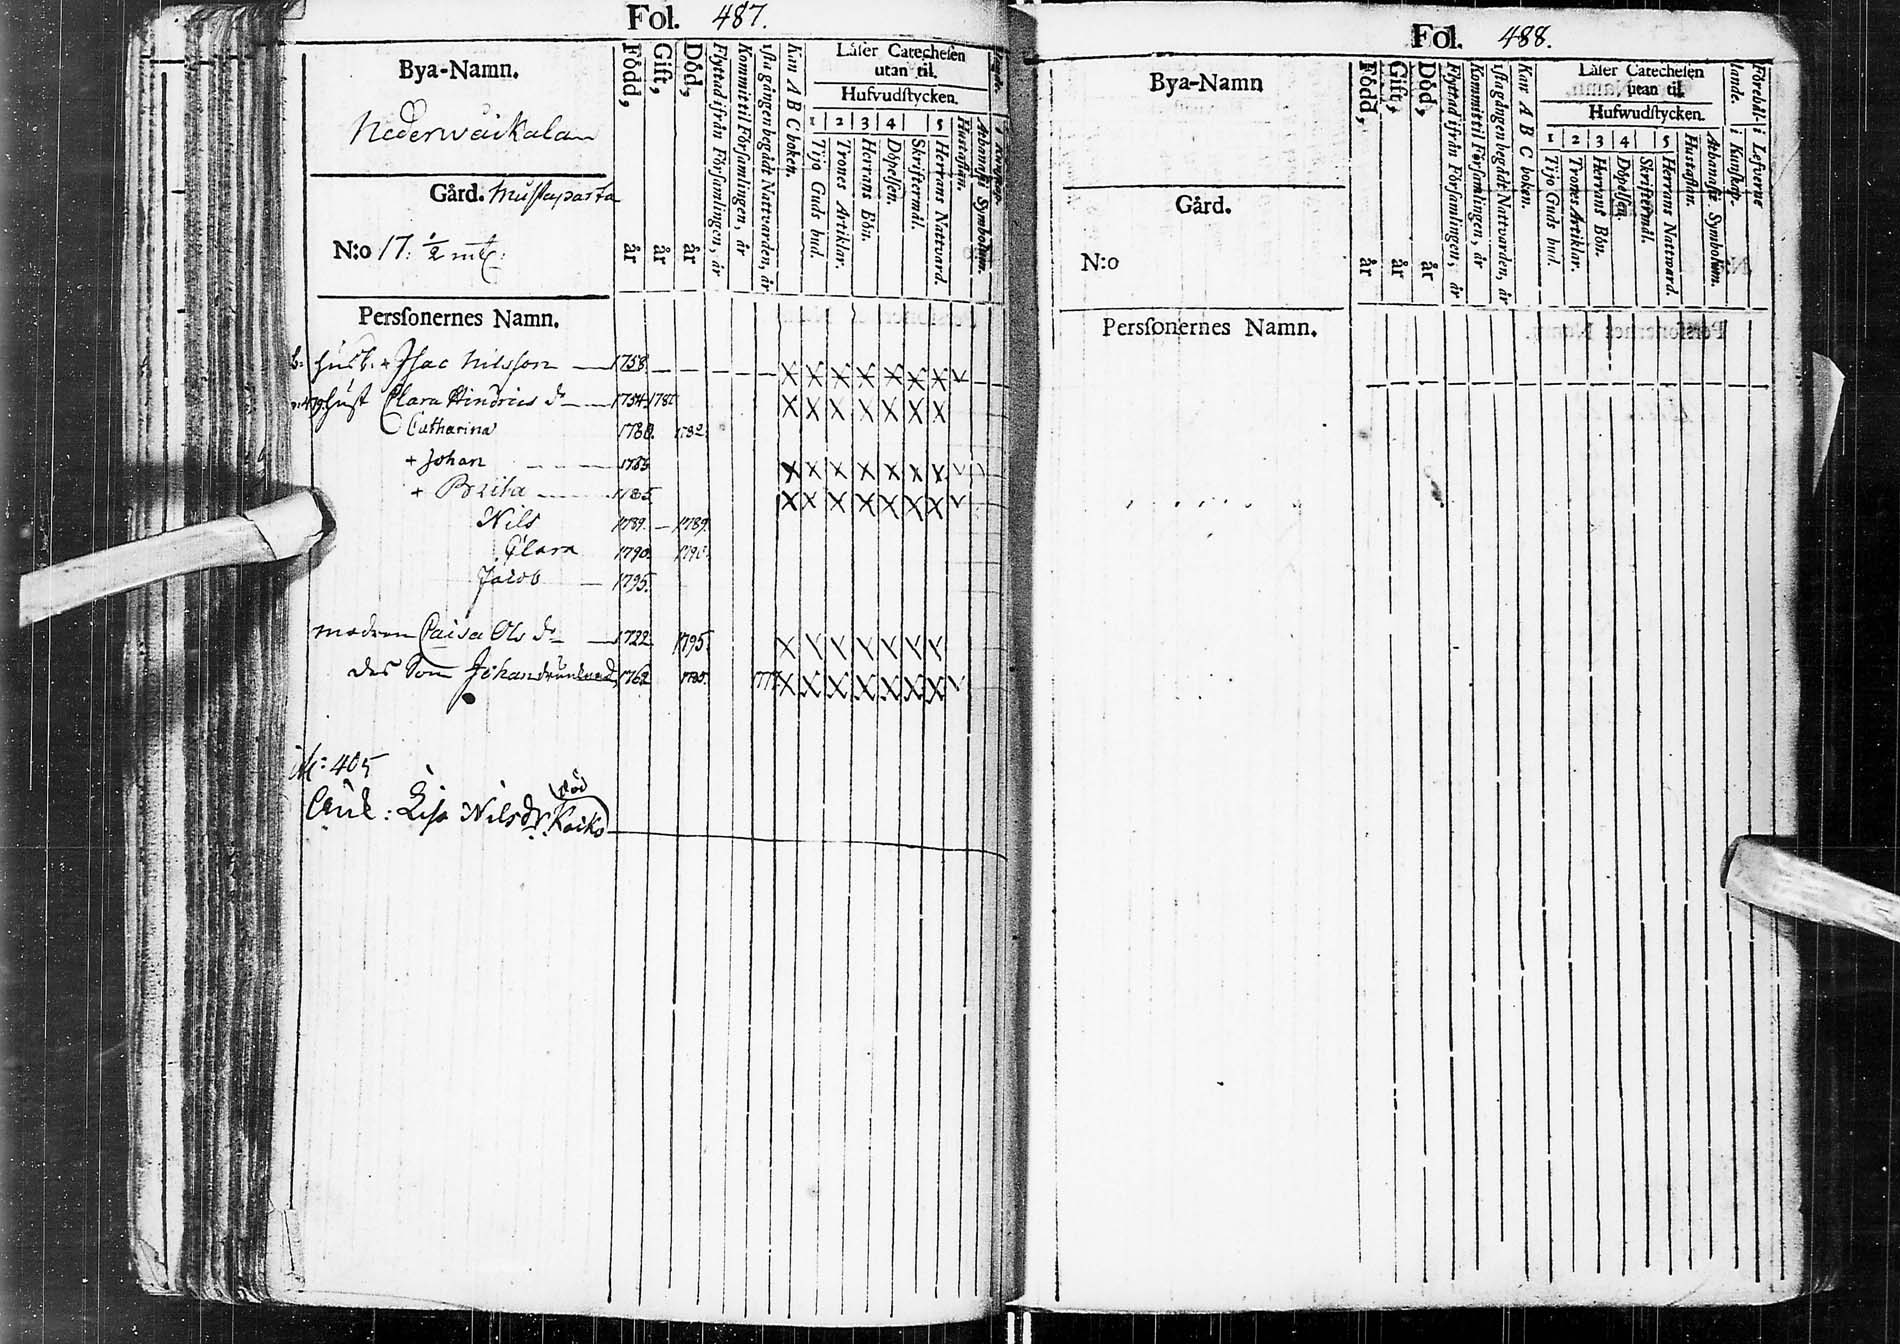 Fol. 487.
Bya-Namn.
Nederweikalan
Gård. Mustaparta
N:o 17. ½ mtl:
Född, år
Gift, år
Död, år
Flyttad ifrån Församlingen, år
Kommit til Församlingen, år
1sta gången begådt Nattvarden, år
Kan A B C boken.
Läser Catechesen
utan til.
Hufvudstycken.
1 2 3 4 5
Tijo Guds bud.
Trones Artiklar.
Herrans Bön.
Döpelsen.
Skriftermål.
Herrans Nattvard.
Hustaflan.
Athanasii Symbolum.
Perssonernes Namn.
husb. + Isac Nilsson 1758.
hust Clara Hindrics dr 1754
Catharina 1780. 1782.
+ Johan
+ Brita 1785
Nils 1789. 1789.
Clara 1790.
Jacob 1795.
modren Caisa Ols dr 1722 1795
des Son Johan 1762
405
Lisa Nilsdr. Kaiko
död
Fol. 488.
Bya-Namn
Gård.
N:o
Född, år
Gift, år
Död, år
Flyttad ifrån Församlingen, år
Kommit til Församlingen, år
1sta gången begådt Natvarden, år
Kan A B C boken.
Läser Catechesen
utan til.
Hufwudstycken.
1 2 3 4 5
Tijo Guds bud.
Trones Artiklar.
Herrans Bön.
Döpelsen
Skriftermål.
Herrans Natward.
Hustaflan.
Athanasii Symbolum.
Förehållande.
i Kunskap.
i Lefverne
Perssonernes Namn.